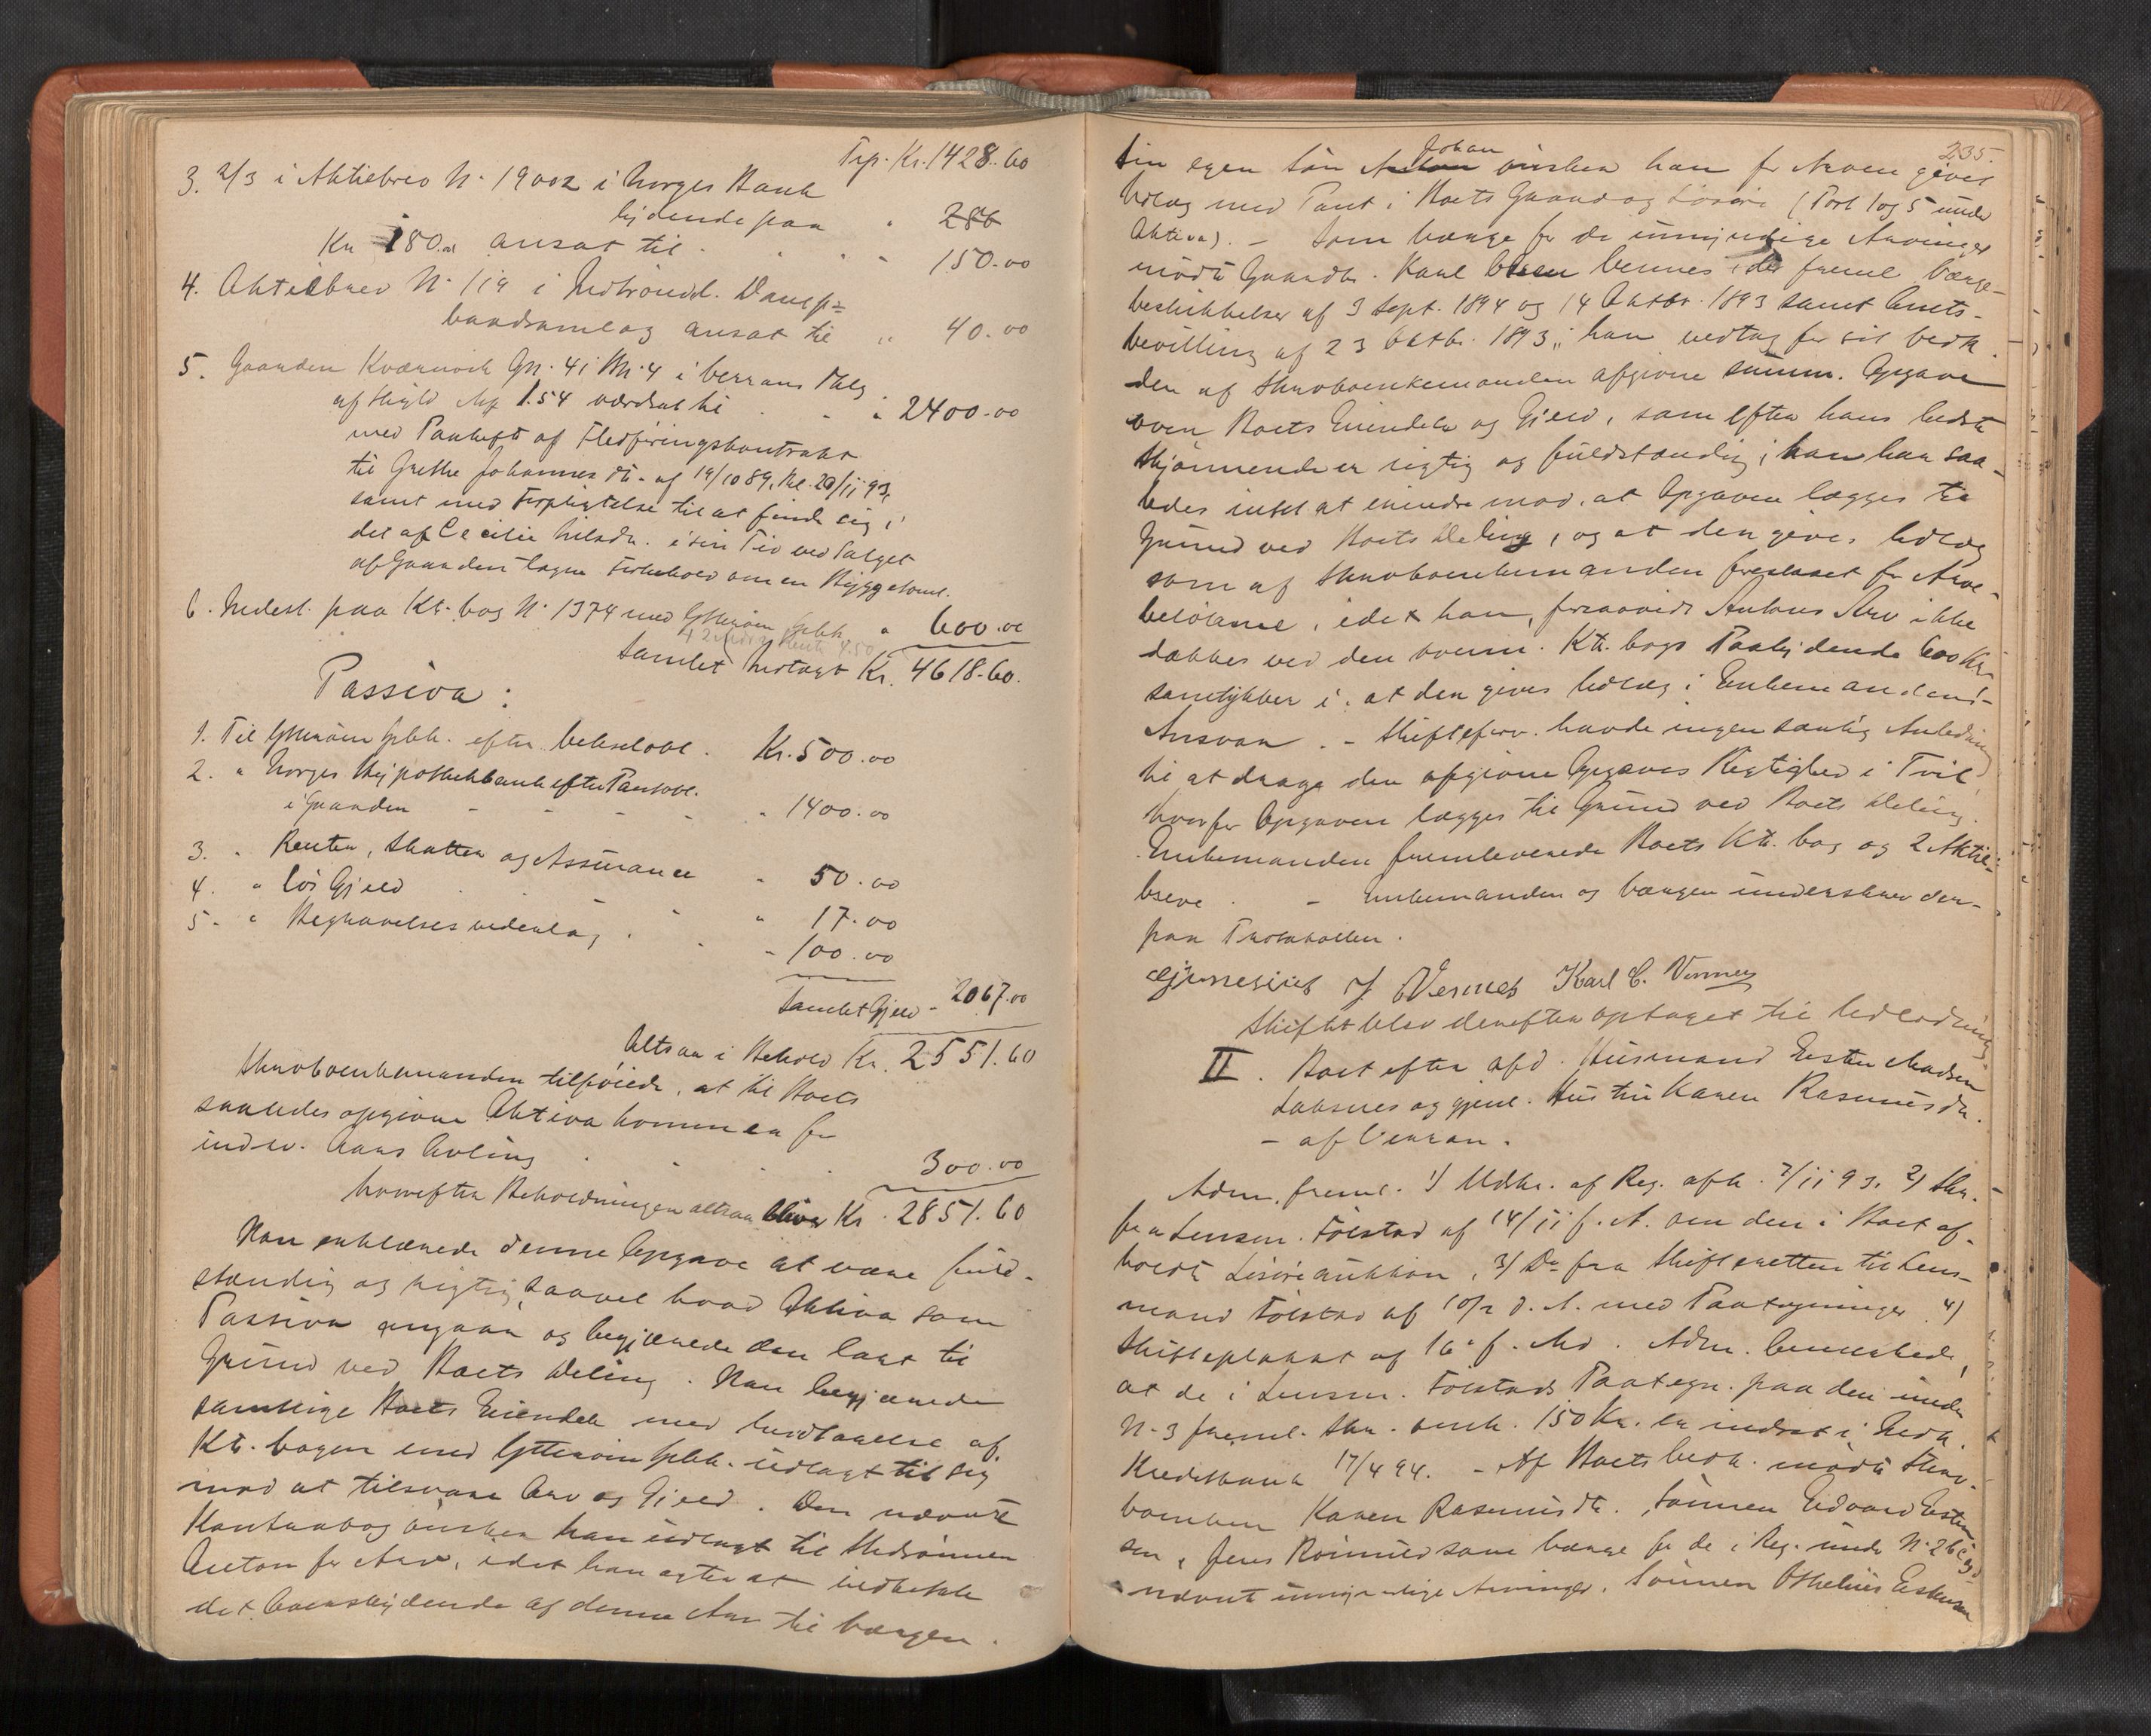 Trp. Kr. 1428.60
3. 2/3 i Aktiebrev N. 19002 i Norges Bank
lydende paa " 286
Kr 180.00 ansat til . . . " 150.00
4. Aktiebrev N. 119 i Indtrøndel. Damp=
baadsamlag ansat til " 40.00
5. Gaarden Kværnvik Gn. 41 Bn. 4 i Verrans Thlg
af Skyld Mk 1.54 værdsat til . . " 2400.00
med Panheft af Fledføringskontrakt
til Grethe Johannesdtr. af 19/10 89, tkl. 20/11 93,
samt med Forpligtelse til at finde sig i
det af Cecilie Nilsdtr. i sin Tid ved Salget
af Gaarden tagne Forbehold om en Byggetomt.
6. Indest. paa Kt. bog N. 1374 med Ytterøen Spbk. " 600.00
Rente 4.50
Samlet Indtægt Kr. 4618.60.
Passiva :
1. Til Ytterøen Spbk. efter Vekselobl. Kr. 500.00
2. " Norges Hypothekbank efter Pantobl.
i Gaarden - - - - " 1400.00
3. " Renter, Skatter og Assurance " 50.00
4. " Løs Gjæld . . " 17.00
5. " Begravelsesvederlag . . - 100.00
Samlet Gjæld - 2067.00
Altsaa i Behold Kr. 2551.60
Skrøboenkemanden tilføiede, at til Boets
saaledes opgivne Aktiva kommer for
indev. Aars Avling . . . 300.00
hvorefter Beholdningen altsaa bliver Kr. 2851.60
Han erklærede denne Opgave at være fuld-
stændig og rigtig saavel hvad Aktiva som
Passiva angaar og begjærede den lagt til
Grund ved Boets Deling. Han begjærede
samtlige Boets Eiendele med Undtagelse af
Kt. bogen med Ytterøen Spbk. udlagt til sig
mod at tilsvare Arv og Gjæld. Den nævnte
Kontrabog ønsker han udlagt til Stedsønnen
Anton for Arv, idet han agter at indbetale
det Overskydende af denne Arv til Værgen.
235.
Sin egen Søn Johan ønsker han for Arven givet
Udlæg med Pant i Boets Gaard og Løsøre (Post 1 og 5 under
Aktiva). - Som Værge for de umyndige Arvinger
mødte Gaardbr. Karl Vennes idet freml. Værge-
beskikkelser af 3 Sept. 1894 og 14 Oktbr. 1893 samt Amts-
bevilling af 23 Oktbr. 1893; han vedtog for sit Vedk.
den af Skrøboenkemanden afgivne summ. Opgave
over Boets Eiendele og Gjæld, som efter hans bedste
Skjønnende er rigtig og fuldstændig; han har saa-
ledes intet at erindre mod, at Opgaven lægges til
Grund ved Boets Deling, og at den gives Udlæg
som af Skrøboenkemanden foreslaaet for Arve-
beløbene, idet han, forsaavidt Antons Arv ikke
dækkes ved den ovenn. Kt. bogs Paalydende 600 Kr
samtykker i, at den gives Udlæg i Enkemandens
Ansvar. - Skifteforv. havde ingen særlig Anledning
til at drage den afgivne Opgaves Rigtighed i Tvil,
hvorfor Opgaven lægges til Grund ved Boets Deling.
Enkemanden fremleverede Boets Kt. bog og 2 Aktie-
breve. - Enkemanden og Værgen underskrev der-
paa Protokollen.
J Vennes Karl C. Vennes
Skiftet blev derefter optaget til Udlodning
II. Boet efter afd. Husmand Esten Madsen
Laksnes og gjenl. Hustru Karen Rasmusdtr.
- af Verran.
Adm. freml. 1) Udskr. af Reg. afh. 7/11 93. 2) Skr.
fra Lensm. Følstad af 14/11 f. A. om den i Boet af-
holdte Løsøreauktion, 3) Do fra Skifteretten til Lens-
mand Følstad af 10/2 d. A. med Paategninger 4)
Skifteplakat af 16 f. Md. Adm. bemærkede,
at de i Lensm. Følstads Paategn. paa den under
N. 3 freml. Skr. omh. 150 Kr. er indsat i Nedr.
Kreditbank 17/4 94. - Af Boets Vedk. mødte Skrø-
boenken Karen Rasmusdtr., Sønnen Edvard Esten
sen, Jens Rømmed som Værge for de i Reg. under N. 2
nævnte umyndige Arvinger, Sønnen Othelius Estensen